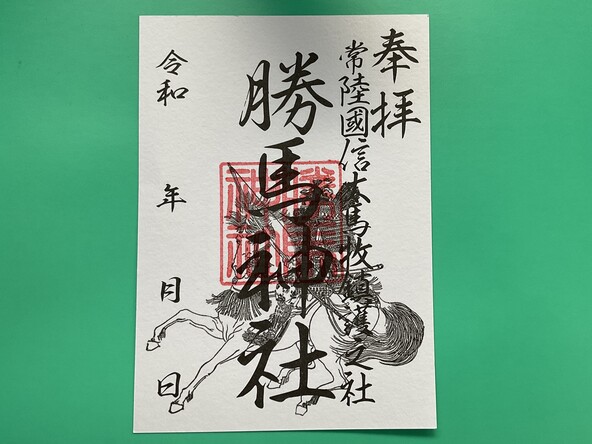 奉拝
常陸國信太馬牧鎮護之社
勝馬神社
令和 年 月 日